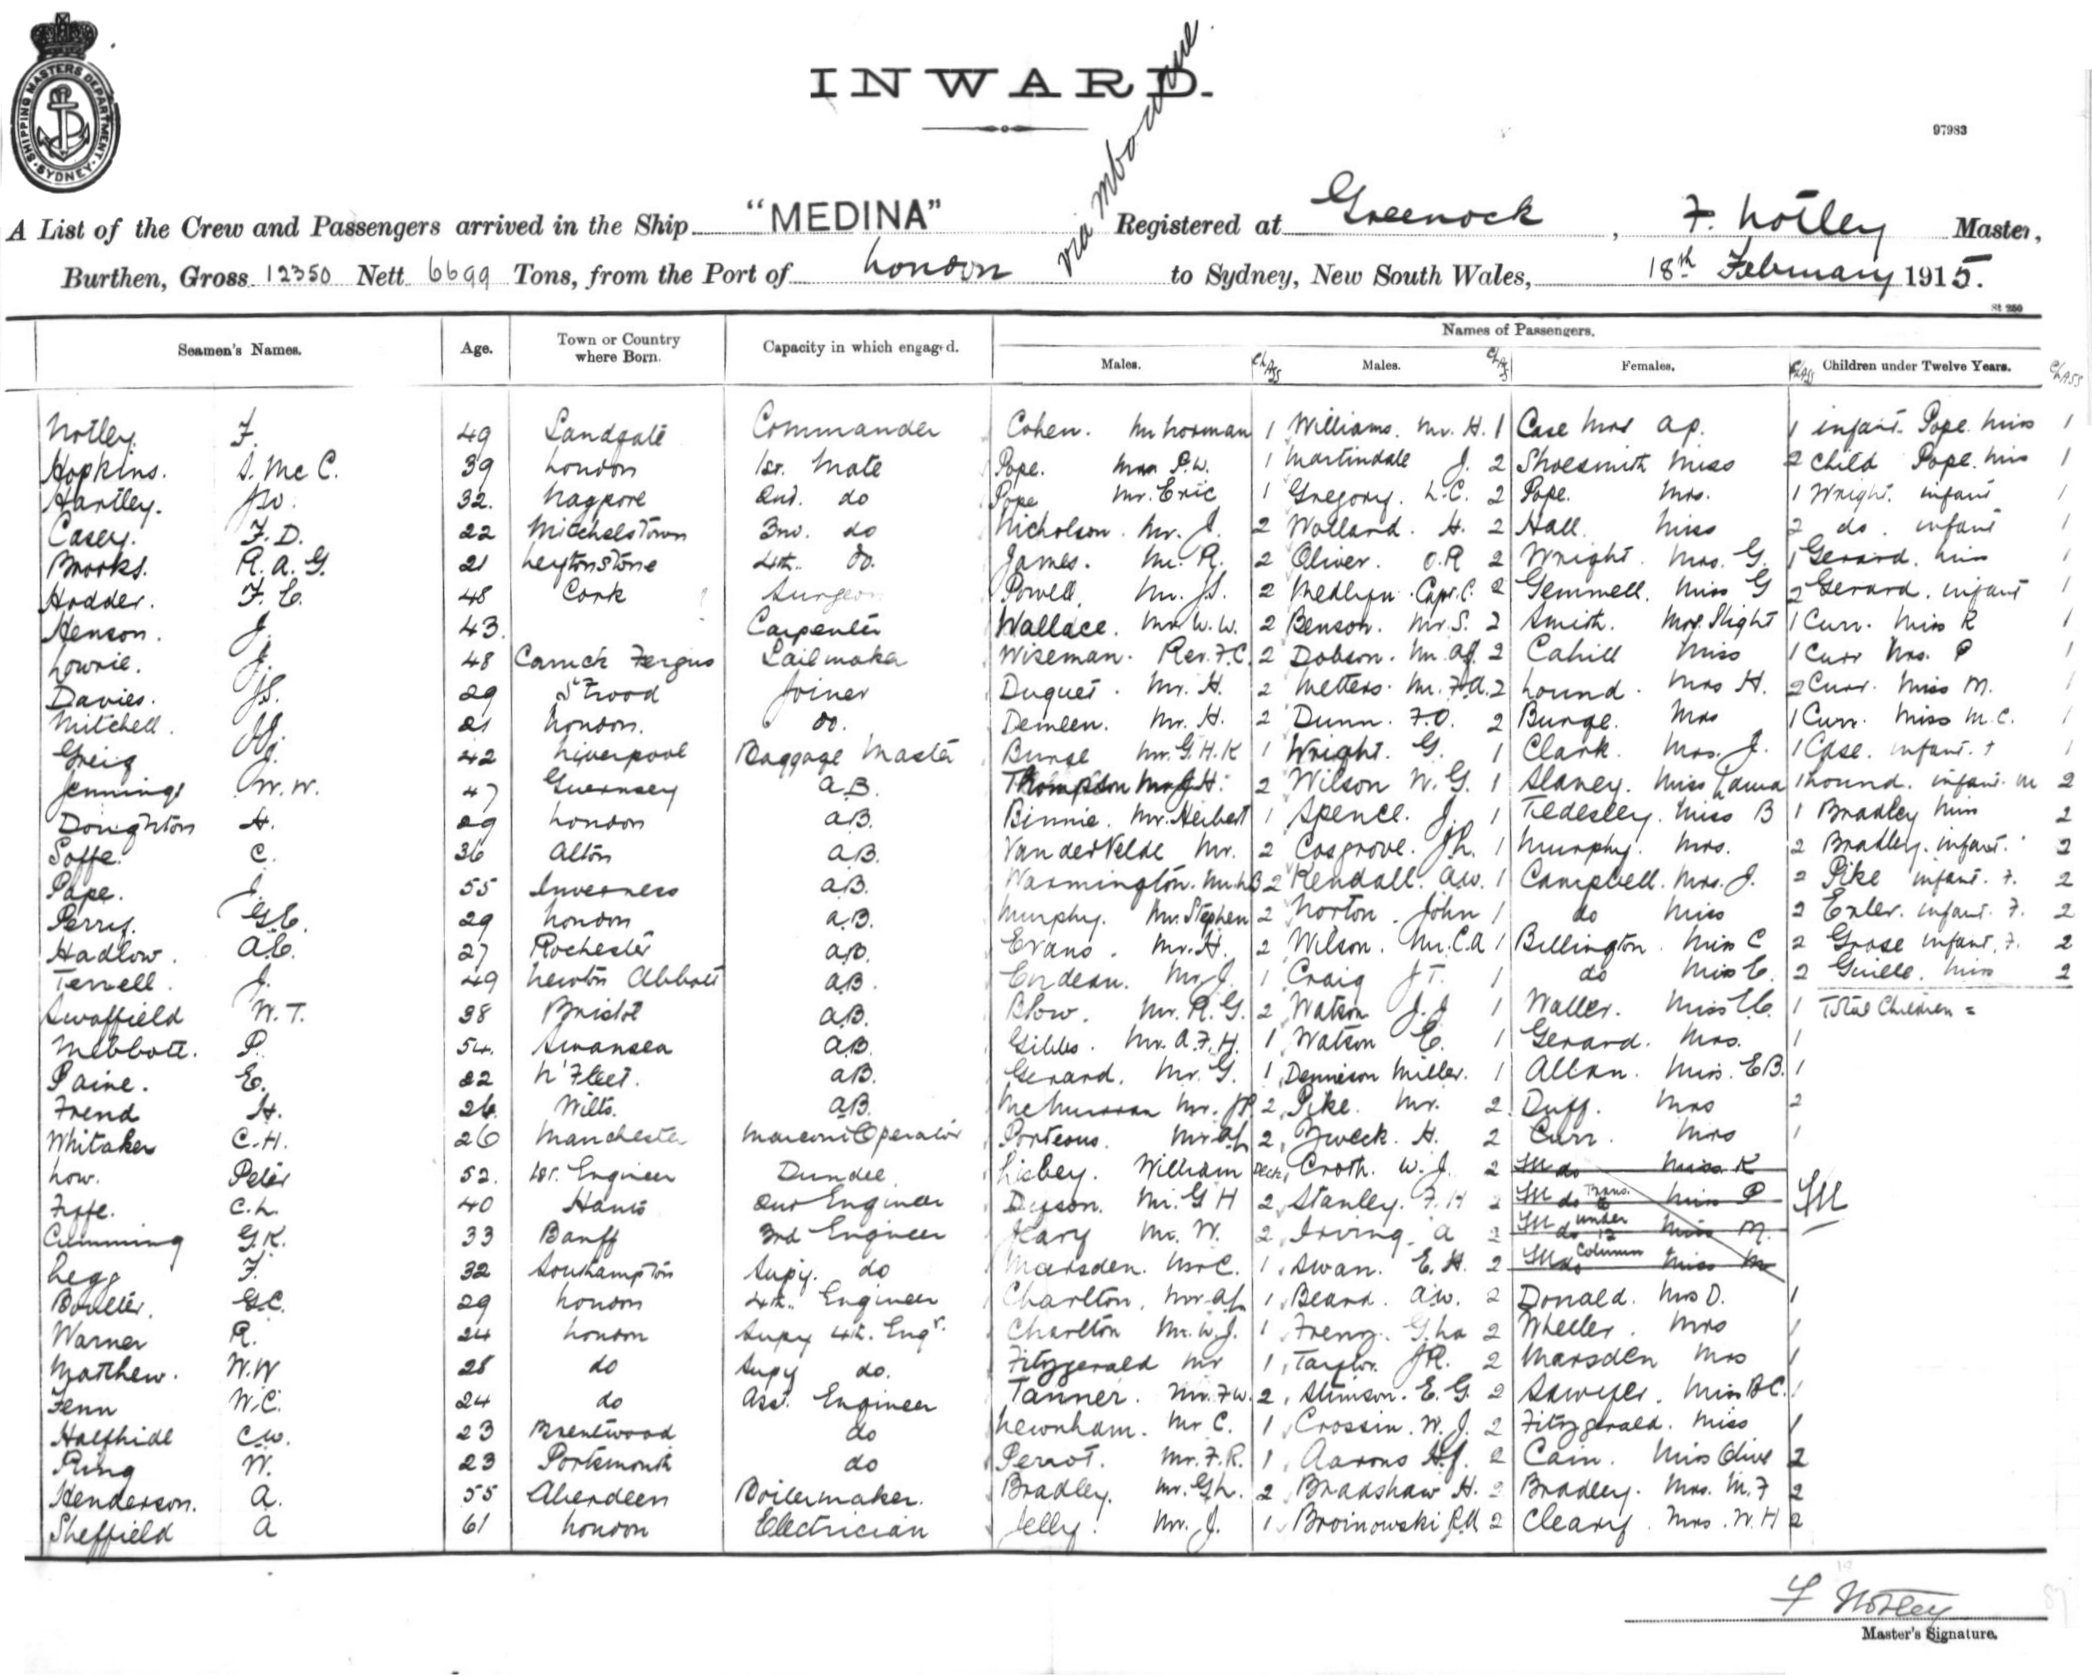 INWARD.
SHIPPING MASTERS DEPARTMENT SYDNEY
97983
A List of the Crew and Passengers arrived in the Ship "MEDINA" via Registered at Greenock, F. Notley Master,
Burthen, Gross 12350 Nett 6699 Tons, from the Port of London to Sydney, New South Wales, 18th February 1915.
St 250
Names of Passengers.
Seamen's Names. Age. Town or Country where Born. Capacity in which engaged. Males. Class Males. Class Females. Class Children under Twelve Years. Class
Notley. F. 49 Landgate Commander Cohen. Mr Norman 1 Williams. Mr. H. 1 Case Mrs A.P. 1 infant. Pope. Miss 1
Hopkins. S. McC. 39 London 1st. Mate Pope. P.W. 1 Martindale J. 2 Shoesmith Miss 2 Child Pope. Miss 1
Hartley. 32. Nagpore 2nd. do Pope Mr. Eric 1 Gregory. L.C. 2 Pope. Mrs. 1 Wright. infant 1
Casey. F.D. 22 Mitchelstown 3rd. do Nicholson. Mr. J. 2 Wolland. H. 2 Hall. Miss 2 do. infant 1
Brooks. R.A.G. 21 Leytonstone 4th. do. James. Mr. R. 2 Oliver. O.R 2 Wright. Mrs. G. 1 Gerard. Miss 1
Hodder. F.E. 48 Cork Surgeon Powell. Mr. J.S. 2 Capt. C. 2 Gemmell. Miss G 2 Gerard. infant 1
Henson. J. 43. Carpenter Wallace. Mr W.W. 2 Benson. Mr. S. 2 Smith. Mrs. Slight 1 Curr. Miss R 1
Lowrie. J. 48 Carrick Fergus Sailmaker Wiseman. Rev. F.C. 2 Dobson. Mr. 2 Cahill Miss 1 Curr P 1
Davies. J.S. 29 Strood Joiner Duguet. Mr. H. 2 Metters. Mr. F.A. 2 Lound. Mrs H. 2 Curr. Miss M. 1
Mitchell. 21 London. do. Demeen. Mr. H. 2 Dunn. F.O. 2 Burge. Mrs 1 Curr. Miss M.C. 1
Greig 42 Liverpool Baggage Master Burge Mr. G.H.K 1 Wright. G. 1 Clark. Mrs. J. 1 Case. infant. 1
Jennings W.W. 47 Guernsey A.B. Thompson 2 Wilson W.G. 1 Slaney. Miss Laura 1 Lound. infant. M 2
Doughton H. 29 London A.B. Binnie. Mr. Herbert 1 Spence. J. 1 Tedesley. Miss B 1 Bradley Miss 2
Soffe. C. 36 Alton A.B. Van der Velde Mr. 2 Cosgrove. J.L. 1 Murphy. Mrs. 2 Bradley. infant. 2
Pape. J. 55 Inverness A.B. Warmington. 2 Kendall. A.W. 1 Campbell. Mrs. J. 2 Pike infant. F. 2
Perry. G.E. 29 London A.B. Murphy. Mr. Stephen 2 Norton. John 1 do Miss 2 Exler. infant. F. 2
Hadlow. A.E. 27 Rochester A.B. Evans. Mr. H. 2 Wilson. Mr. C.A 1 Billington. Miss C 2 Grose infant. F. 2
Terrell. J. 49 Newton Abbott A.B. Endean. Mr. J. 1 Craig J.T. 1 do Miss E. 2 Guille. Miss 2
Swaffield W.T. 38 Bristol A.B. Blow. Mr. R.G. 2 Watson J.J 1 Waller. Miss 1 Total Children =
Mebbott. P. 54. Swansea A.B. Gibbs. Mr. A.F.H. 1 Watson E. 1 Gerard. Mrs. 1
Paine. E. 22 N'Fleet. A.B. Gerard. Mr. G. 1 Dennison Miller. 1 Allan. E.B. 1
Frend H. 26. Wilts. A.B. McMurran Mr. 2 Pike. Mr. 2 Duff. Mrs 2
Whitaker C.H. 26 Manchester Marconi Operator Porteous. 2 Zweck. H. 2 Curr. Mrs 1
Low. Peter 52. 1st. Engineer Dundee Lisbey. William Croth. W.J. 2 do Miss K
Fyffe. C.L. 40 Hants 2nd Engineer Dyson. Mr. G H 2 Stanley. F.H 2 do Trans. to Miss P
Cumming G.K. 33 Banff 3rd Engineer Mr. W. 2 Irving. A 2 do under 12 Miss M.
Legg F. 32 Southampton Supy. do Marsden. Mr C. 1 Swan. E.H. 2 do Column Miss M
Boulter. G.C. 29 London 4th. Engineer Charlton. 1 Beard. A.W. 2 Donald. Mrs D. 1
Warner R. 24 London Supy 4th. Engr. Charlton Mr. W.J. 1 2 Wheller. Mrs 1
Matthew. W.W 28 do Supy do. Fitzgerald Mr 1 Taylor. J.R. 2 Marsden Mrs 1
Fenn W.C. 24 do Asst. Engineer Tanner. Mr. F.W. 2 Stimson. E.G. 2 Sawyer. Miss B.C. 1
Halfhide C.W. 23 Brentwood do Newnham. Mr C. 1 Crossin. W.J. 2 Fitzgerald. Miss 1
Ring W. 23 Portsmouth do Perrot. Mr. F.R. 1 Aarons H.J. 2 Cain. Miss Olive 2
Henderson. A. 55 Aberdeen Boilermaker. Bradley. Mr. G.L. 2 Bradshaw H. 2 Bradley. Mrs. M.F 2
Sheffield A 61 London Electrician Jelly. Mr. J. 1 Broinowski 2 Cleary. Mrs. W.H 2
F Notley
Master's Signature.